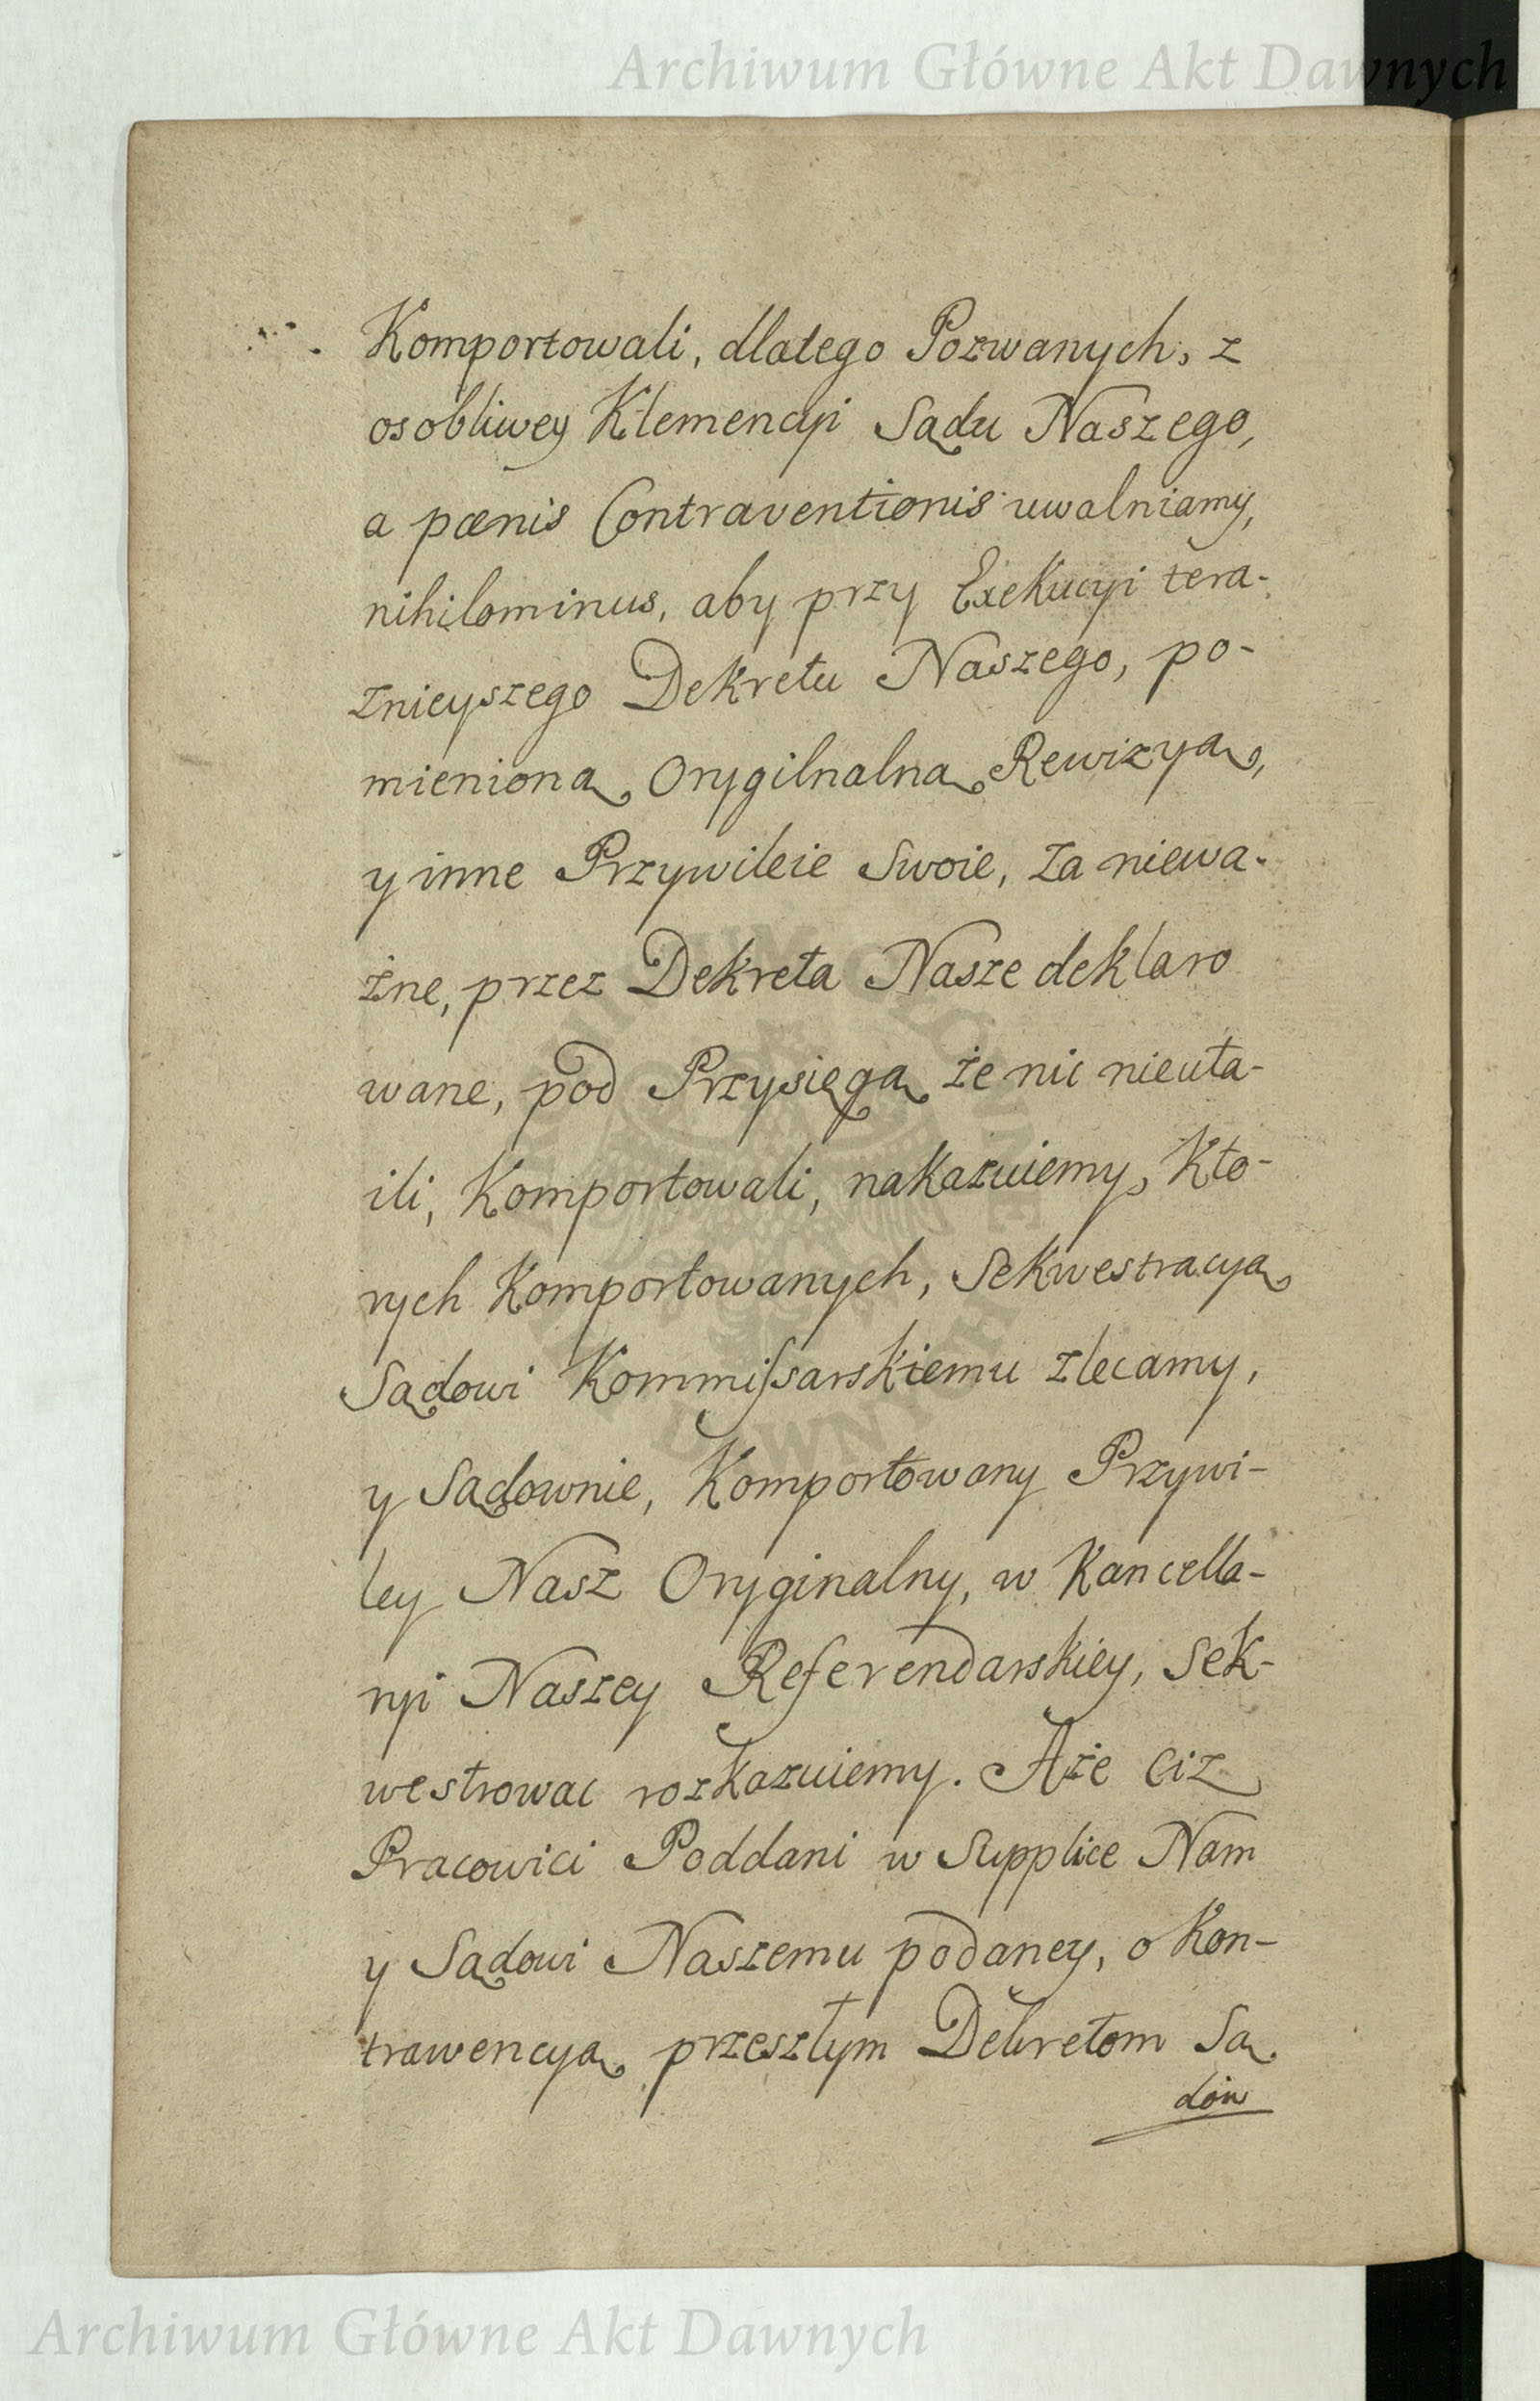 Archiwum Główne Akt Dawnych
Komportowali, dlatego Pozwanych, z
osobliwey Klemencyi Sądu Naszego,
a pœnis Contraventionis uwalniamy,
nihilominus, aby przy Exekucyi tera-
znieyszego Dekretu Naszego, po-
mienioną Orygilnalną Rewizyą,
y inne Przywileie Swoie, za niewa-
żne, przez Dekreta Nasze deklaro
wane, pod Przysięgą że nic nieuta-
ili, Komportowali, nakazuiemy, Kto-
rych Komportowanych, Sekwestracyą
Sądowi Kommissarskiemu zlecamy,
y Sądownie, Komportowany Przywi-
ley Nasz Oryginalny, w Kancella-
ryi Naszey Referendarskiey, Sek-
westrowac rozkazuiemy. Aże ciz
Pracowici Poddani w Supplice Nam
y Sądowi Naszemu podaney, o Kon-
trawencyą przeszłym Dekretom Są
dów
Archiwum Główne Akt Dawnych